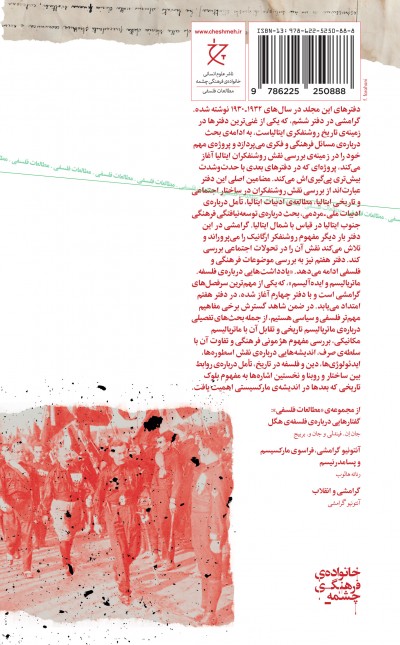 www.cheshmeh.ir
نشر علوم انسانی
خانواده‌ی فرهنگی چشمه
مطالعات فلسفی
ISBN-13: 978-622-5250-88-8
9 786225 250888
دفترهای این مجلد در سال‌های ۱۹۳۲-۱۹۳۰ نوشته شده.
گرامشی در دفتر ششم، که یکی از غنی‌ترین دفترها در
زمینه‌ی تاریخ روشنفکری ایتالیاست، به ادامه‌ی بحث
درباره‌ی مسائل فرهنگی و فکری می‌پردازد و پروژه‌ی مهم
خود را در زمینه‌ی بررسی نقش روشنفکران ایتالیا آغاز
می‌کند. پروژه‌ای که در دفترهای بعدی با حدت‌وشدت
بیش‌تری پی‌گیری‌اش می‌کند. مضامین اصلی این دفتر
عبارت‌اند از بررسی نقش روشنفکران در ساختار اجتماعی
و تاریخی ایتالیا، مطالعه‌ی ادبیات ایتالیا، تأمل درباره‌ی
ادبیات ملی ـ مردمی، بحث درباره‌ی توسعه‌نیافتگی فرهنگی
جنوب ایتالیا در قیاس با شمال ایتالیا. گرامشی در این
دفتر بار دیگر مفهوم روشنفکر ارگانیک را می‌پروراند و
تلاش می‌کند نقش آن را در تحولات اجتماعی بررسی
کند. دفتر هفتم نیز به بررسی موضوعات فرهنگی و
فلسفی ادامه می‌دهد. «یادداشت‌هایی درباره‌ی فلسفه.
ماتریالیسم و ایده‌آلیسم»، که یکی از مهم‌ترین سرفصل‌های
گرامشی است و با دفتر چهارم آغاز شده، در دفتر هفتم
امتداد می‌یابد. در ضمن شاهد گسترش برخی مفاهیم
مهم‌تر فلسفی و سیاسی هستیم، از جمله بحث‌های تفصیلی
درباره‌ی ماتریالیسم تاریخی و تقابل آن با ماتریالیسم
مکانیکی، بررسی مفهوم هژمونی فرهنگی و تفاوت آن با
سلطه‌ی صرف، اندیشه‌هایی درباره‌ی نقش اسطوره‌ها،
ایدئولوژی‌ها، دین و فلسفه در تاریخ، تأمل درباره‌ی روابط
بین ساختار و روبنا و نخستین اشاره‌ها به مفهوم بلوک
تاریخی که بعدها در اندیشه‌ی مارکسیستی اهمیت یافت.
مطالعات فلسفی . مطالعات فلسفی . مطالعات فلسفی
از مجموعه‌ی «مطالعات فلسفی»:
گفتارهایی درباره‌ی فلسفه‌ی هگل
جان ان. فیندلی و جان و. بربیج
آنتونیو گرامشی، فراسوی مارکسیسم
و پسامدرنیسم
رناته هالوب
گرامشی و انقلاب
آنتونیو گرامشی
خانواده‌ی
فرهنگی
چشمه